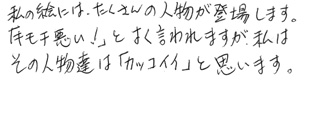 私の絵には、たくさんの人物が登場します。
「キモチ悪い!」とよく言われますが、私は
その人物達は「カッコイイ」と思います。